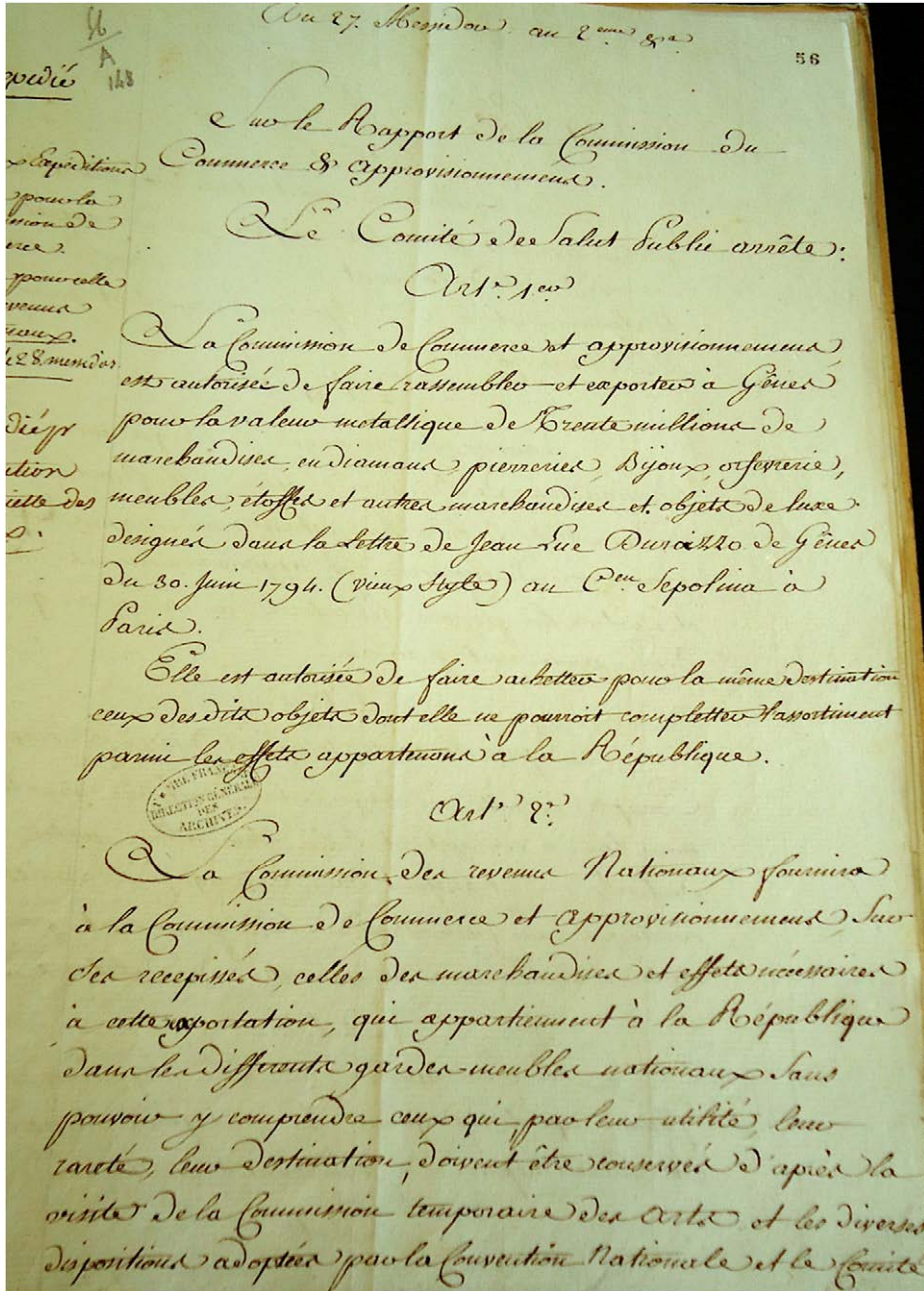 Du 27. Messidor an 2eme &a
56
56
A
148
Expeditions
pour la
de
pour celle
28. messidor
des
Sur le Rapport de la Commission du
Commerce & approvisionnemens.
Le Comité de Salut Public arrête:
Art.e 1.er
La Commission de Commerce et approvisionnemens
est autorisée de faire rassembler et exporter à Gênes
pour la valeur metallique de Trente millions de
marchandises, en diamans, pierreries, Bijoux, orfevrerie,
meubles, étoffes et autres marchandises et objets de luxe
désignés dans la Lettre de Jean Luc Durazzo de Gênes
du 30. Juin 1794. (vieux style) au C.en Sepolina à
Paris.
Elle est autorisée de faire achetter pour la même destination
ceux des dits objets dont elle ne pourroit completter l'assortiment
parmi les effets appartenons à la République.
DES
ARCHIVES
Art.e 2.e
La Commission des revenus Nationaux fournira
à la Commission de Commerce et Approvisionnemens Sur
ses recepissés, celles des marchandises et effets nécessaires
à cette exportation, qui appartiennent à la République
dans les differents gardes-meubles nationaux Sans
pouvoir y comprendre ceux qui par leur utilité, leur
rareté, leur destination, doivent être conservés d'après la
visite de la Commission temporaire des Arts et les diverses
dispositions adoptées par la Convention Nationale et le Comité